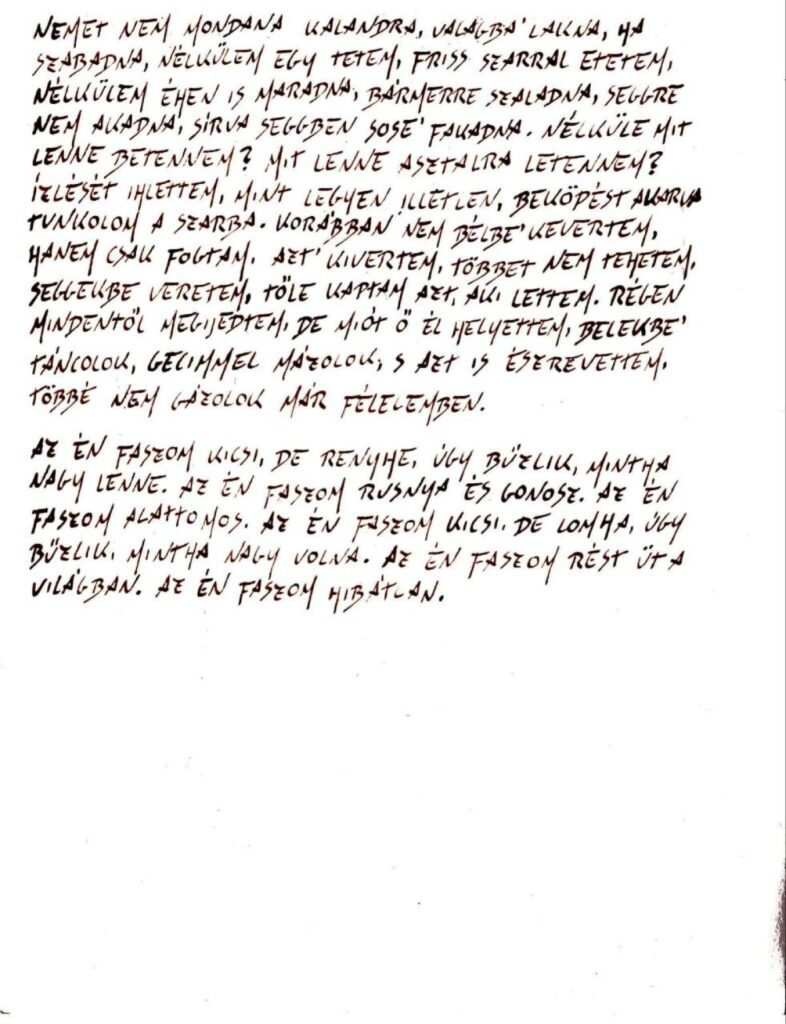 NEMET NEM MONDANA KALANDRA, VALAGBA' LAKNA, HA
SZABADNA, NÉLKÜLEM EGY TETEM, FRISS SZARRAL ETETEM,
NÉLKÜLEM ÉHEN IS MARADNA, BÁRMERRE SZALADNA, SEGGRE
NEM AKADNA, SÍRVA SEGGBEN SOSE' FAKADNA. NÉLKÜLE MIT
LENNE BETENNEM? MIT LENNE ASZTALRA LETENNEM?
ÍZLÉSÉT IHLETTEM, MINT LEGYEN ILLETLEN, BEKÖPÉST AKARVA
TUNKOLOM A SZARBA. KORÁBBAN NEM BÉLBE' KEVERTEM,
HANEM CSAK FOGTAM, AZT' KIVERTEM, TÖBBET NEM TEHETEM,
SEGGEKBE VERETEM, TŐLE KAPTAM AZT, AKI LETTEM. RÉGEN
MINDENTŐL MEGIJEDTEM, DE MIÓT Ő ÉL HELYETTEM, BELEKBE'
TÁNCOLOK, GECIMMEL MÁZOLOK, S AZT IS ÉSZREVETTEM,
TÖBBÉ NEM GÁZOLOK MÁR FÉLELEMBEN.
AZ ÉN FASZOM KICSI, DE RENYHE, ÚGY BŰZLIK, MINTHA
NAGY LENNE. AZ ÉN FASZOM RUSNYA ÉS GONOSZ. AZ ÉN
FASZOM ALATTOMOS. AZ ÉN FASZOM KICSI, DE LOMHA, ÚGY
BŰZLIK, MINTHA NAGY VOLNA. AZ ÉN FASZOM RÉST ÜT A
VILÁGBAN. AZ ÉN FASZOM HIBÁTLAN.